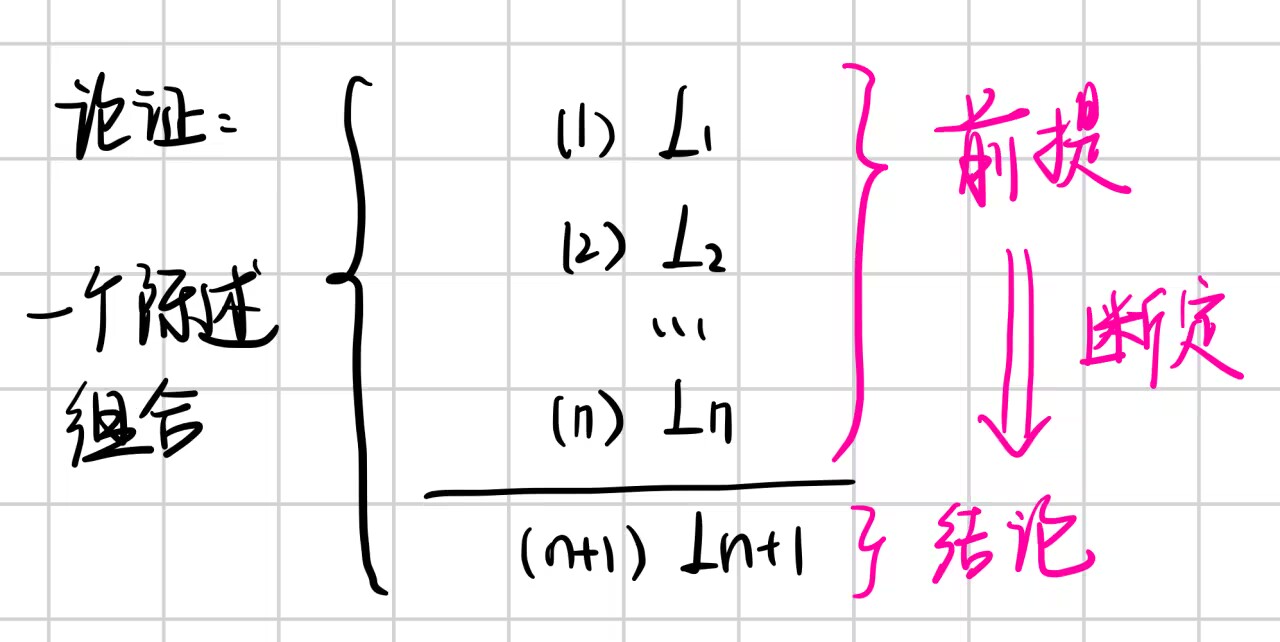 论证：
一个陈述
组合
(1) L1
(2) L2
...
(n) Ln
(n+1) Ln+1
前提
断定
结论